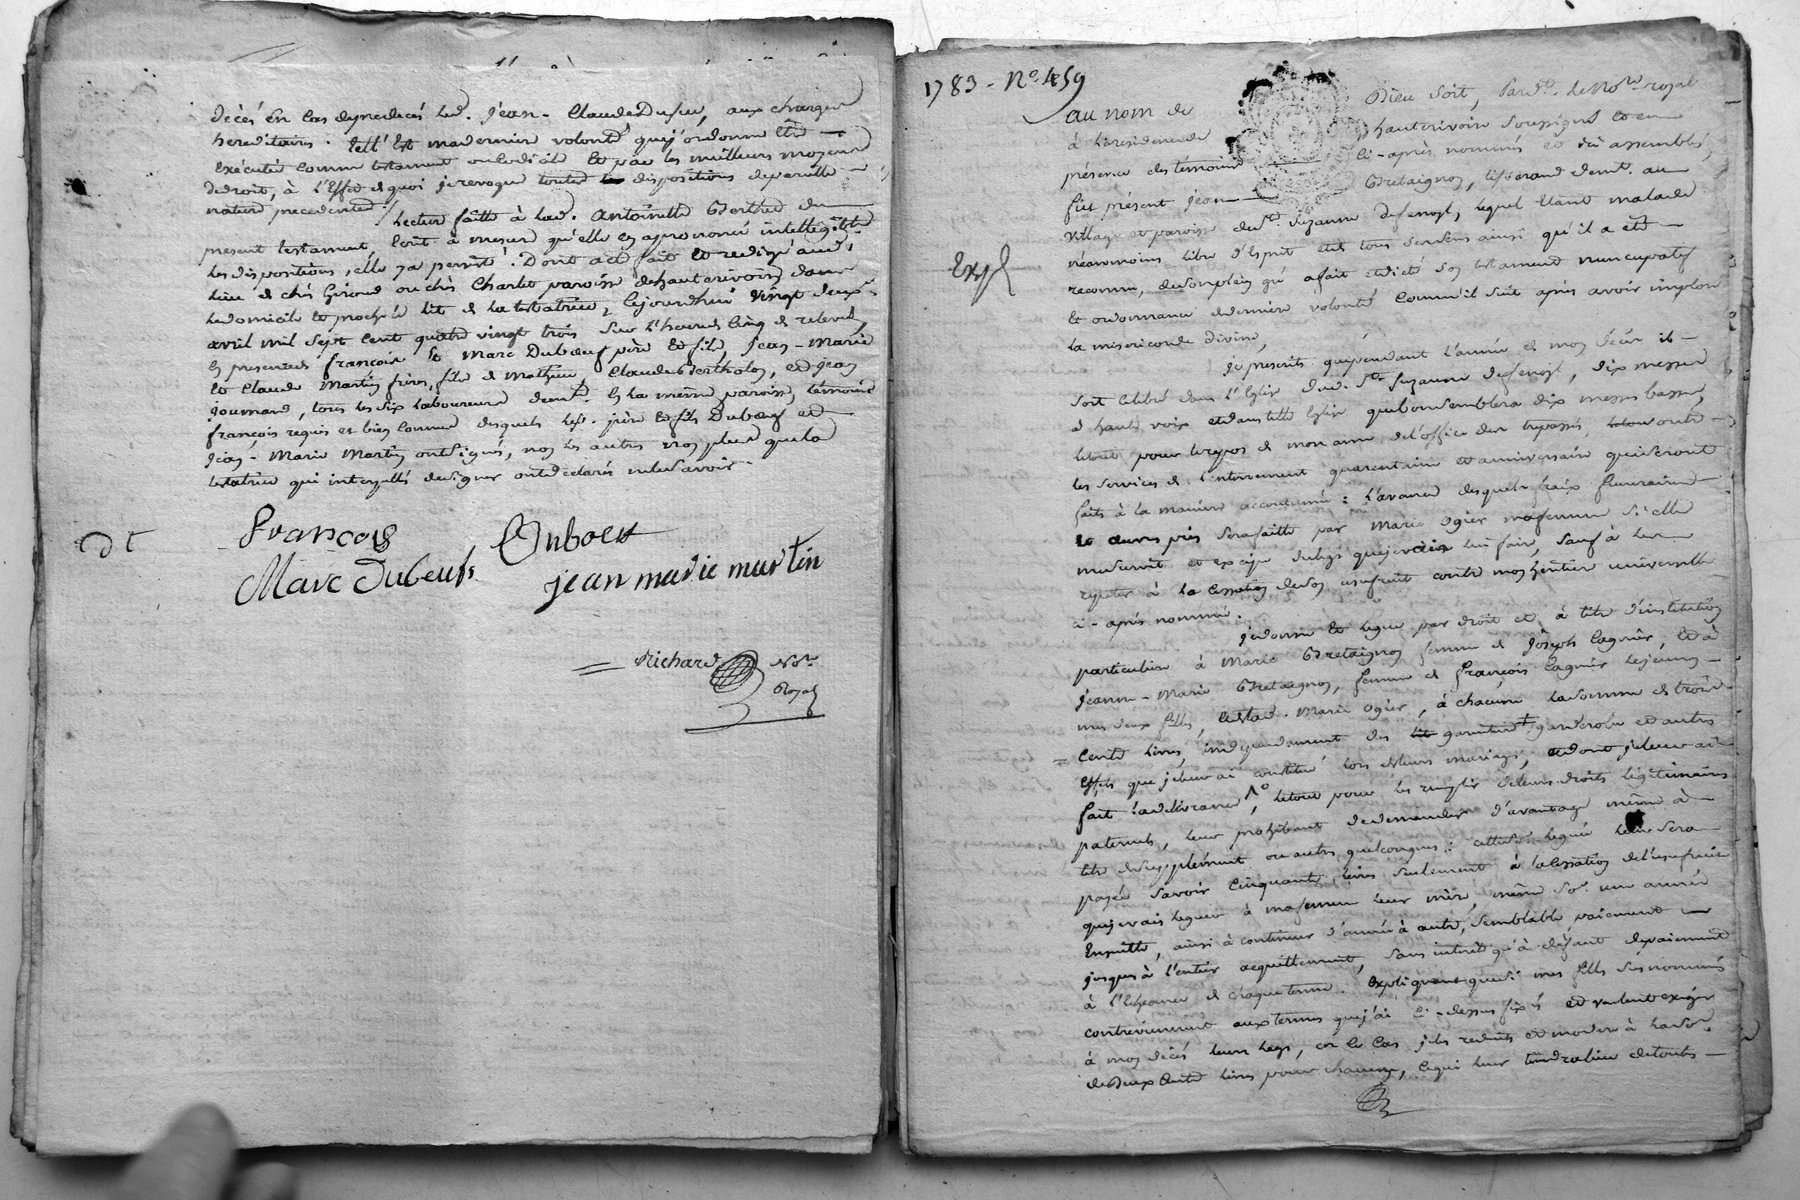 décès en cas de prédécès dud. Jean-Claude Dufeu, aux charges
hereditaires. Tell' Est ma derniere volonté que j'ordonne être
exécuté comme testament ou codicile Et par les meilleurs moyens
de droit, à l'Effet de quoi je revoque toutes dispositions de pareille
nature precedentes./.
Lecture faitte à lad. Antoinette Berthet du
present testament Ecrit à mesure qu'elle en a prononcé intelligiblemt
les dispositions, elle y a persisté. Dont acte fait et redigé aud.
lieu de chés Giroud ou chés Charlet paroisse de hauterivoire dans
le domicile et proche le lit de la testatrice, Cejourdhui vingt deux
avril mil sept cent quatre vingt trois sur l'heure de cinq de relevée,
En presences de françois Et Marc Duboeuf père et fils Jean-Marie
et Claude Martin frères, fils de Mathieu, Claude Bertholon, et Jean
Journand, tous les six laboureurs demt. En la même paroisse, témoins
françois requis et bien connus desquels lesd. père et fils Duboeuf et
Jean-Marie Martin ont signés, non les autres non plus que la
testatrice qui interpellés de signer ont declarés ne le savoir.
François Duboeu
Marc Dubeufs
jean marie martin
Richard Nore
Royal
1783 - No. 459
au nom de Dieu soit, Pard. le Nore royal
à la residence de hauterivoire soussigné et en
présence des témoins ci-après nommés et icy assemblés,
fut présent Jean Bretaignon, tisserand demt. au
village et paroisse de Ste Suzanne d'
néanmoins libre d'Esprit et de tous ses sens ainsi qu'il a été
Exp
reconnu, de son plein gré a fait et dicté son testament nuncupatif
et ordonnance de derniere volonté Comme il suit après avoir imploré
la misericorde divine,
Je prescrits que pendant l'année de mon décès il
soit Célébré dans l'Eglise dud. Ste Suzanne dix messes
à haute voix et dans telle Eglise que bon semblera dix messes basses,
le tout pour le repos de mon ame de l'office des trepassés, outre
les services de l'enterrement quarantaine et anniversaire qui seront
faits à la maniere accoutumée : l'avance desquels fraix funeraires
et œuvres pies sera faitte par Marie Ogier ma femme si elle
me survit et exige du legs que je vais lui faire, sauf à les
repeter à la cessation de son usufruit contre mon héritier universelle
ci-après nommé.
Je donne et legue par droit et à titre d'institution
particuliere à Marie Bretaignon femme de Joseph Cagnier, et à
Jeanne-Marie Bretaignon, femme de françois Cagnier le jeune
mes deux filles, et de lad. Marie Ogier, à chacune la somme de trois
Cents livres, independament des garniture garderobe et autres
Effets que je leur ai constitué lors de leurs mariages, et dont je leur ai
fait la delivrance, le tout pour les remplir de leurs droits légitimaires
paternels, leur prohibant de demander d'avantage même à
titre de supplément ou autres quelconques : cette somme leguée leur sera
payée savoir cinquante livres seulement à la cessation de l'usufruit
que je vais leguer à ma femme leur mère, même soe. une année
Ensuitte, ainsi à continuer d'année à autre, semblable paiement
jusques à l'entier acquittement, sans intérêt qu'à défaut de paiement
à l'échéance de chaque terme. Expliquant que si mes filles susnommées
contreviennent aux termes que j'ai ci-dessus fixés et veulent exiger
à mon décès leurs legs, en ce cas je les reduits et modere à la soe.
de Deux Cents livres pour chacune, ce qui leur tiendra lieu de touts